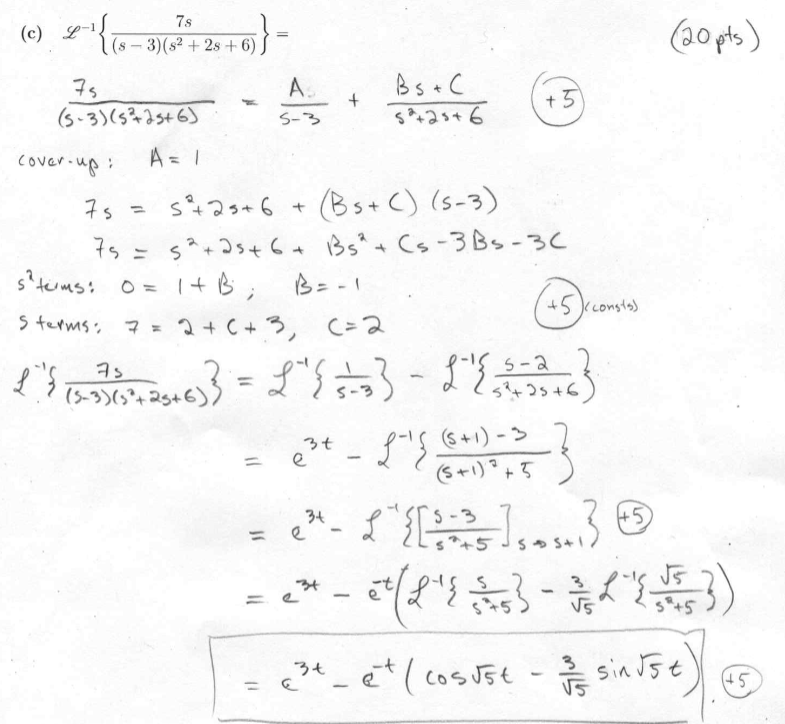 (c) ℒ⁻¹{ 7s / ((s − 3)(s² + 2s + 6)) } = (20 pts)
7s / ((s-3)(s²+2s+6)) = A / (s-3) + (Bs+C) / (s²+2s+6) (+5)
cover-up: A = 1
7s = s²+2s+6 + (Bs+C)(s-3)
7s = s²+2s+6 + Bs² + Cs - 3Bs - 3C
s² terms: 0 = 1 + B ; B = -1
s terms: 7 = 2 + C + 3, C = 2 (+5) (consts)
ℒ⁻¹{ 7s / ((s-3)(s²+2s+6)) } = ℒ⁻¹{ 1 / (s-3) } - ℒ⁻¹{ (s-2) / (s²+2s+6) }
= e^{3t} - ℒ⁻¹{ ((s+1) - 3) / ((s+1)² + 5) }
= e^{3t} - ℒ⁻¹{ [ (s-3) / (s²+5) ]_{s→s+1} } (+5)
= e^{3t} - e^{-t} ( ℒ⁻¹{ s / (s²+5) } - 3/√5 ℒ⁻¹{ √5 / (s²+5) } )
= e^{3t} - e^{-t} ( cos √5 t - 3/√5 sin √5 t ) . (+5)